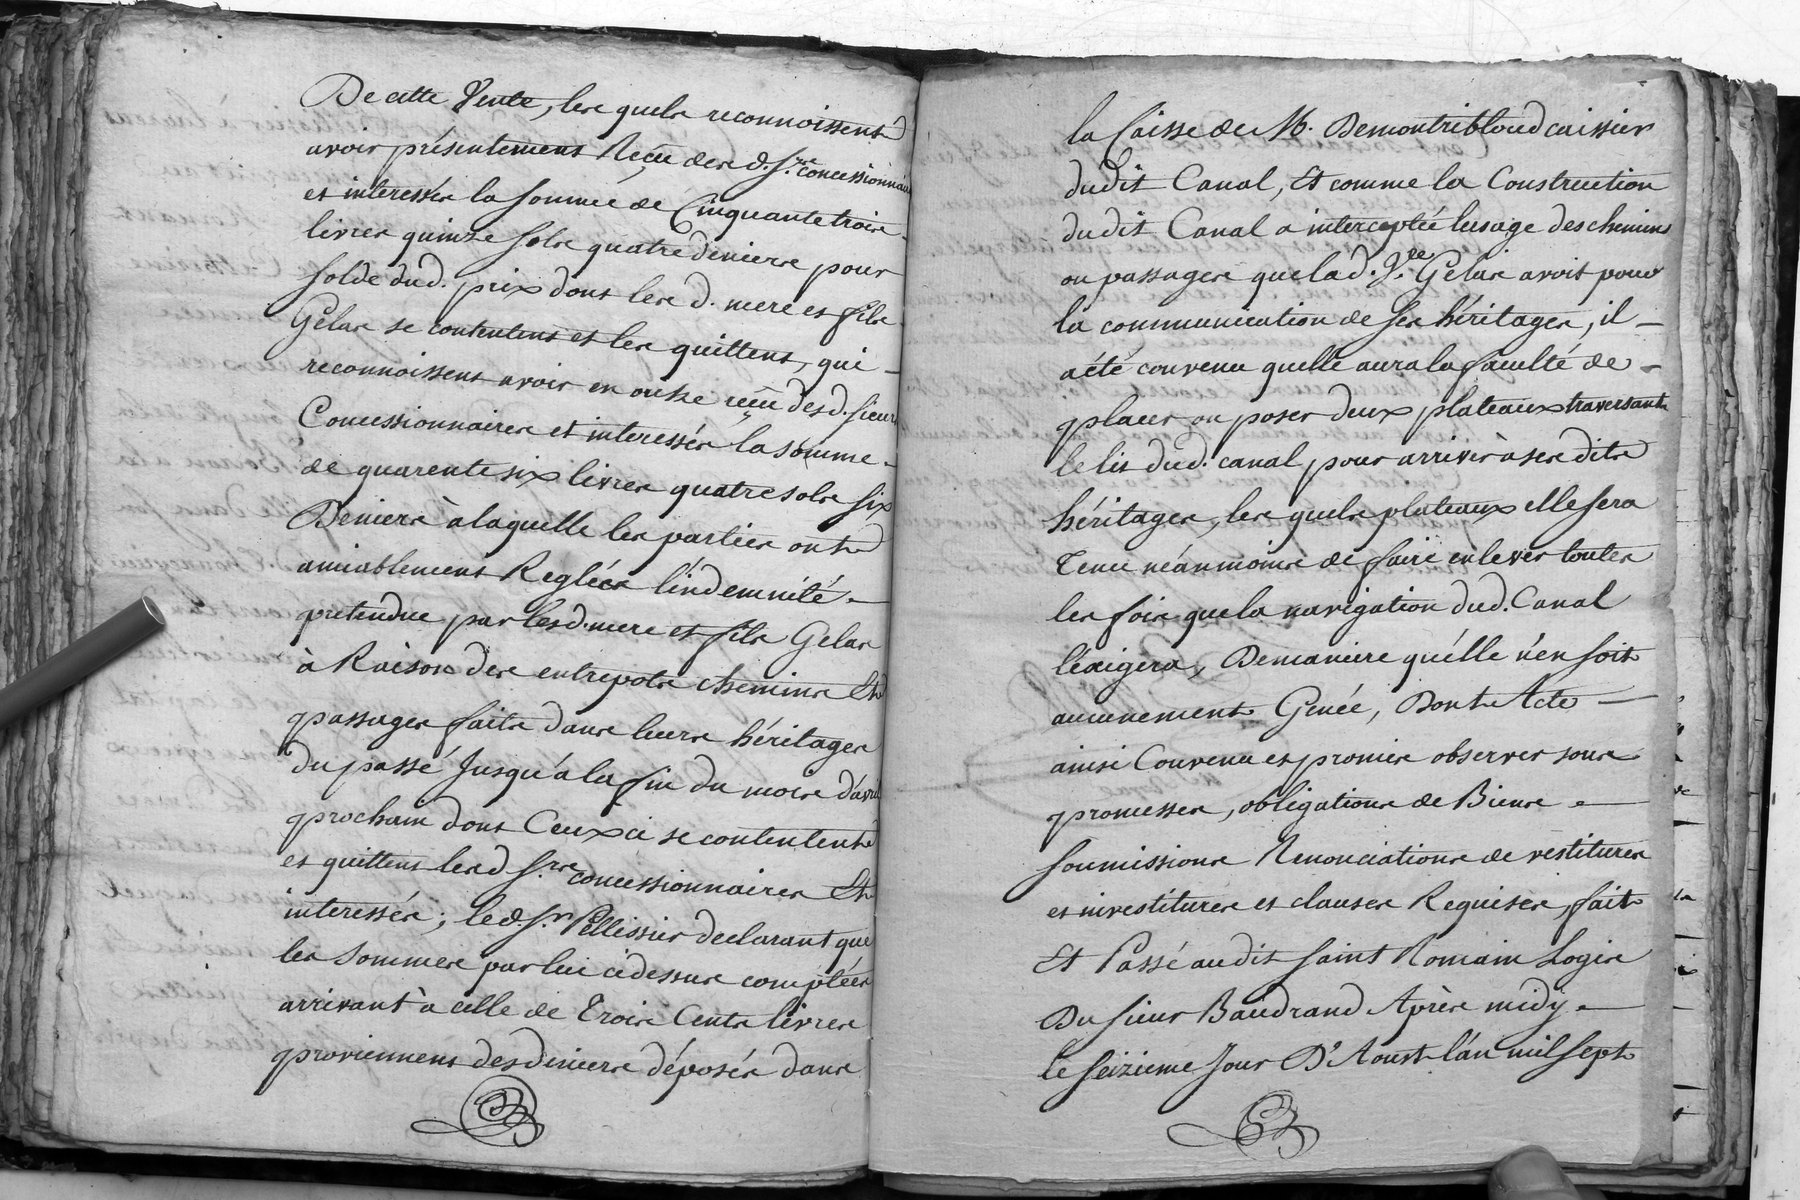 De cette Vente, les quels reconnoissent
avoir présentement Reçu des d. s.rs concessionnaires
et interessés la somme de Cinquante trois
livres quinze sols quatre deniers pour
solde dud. prix dont les d. mere et fils
Gelas se contentent et les quittent, qui
reconnoissent avoir en outre reçu des d. sieurs
Concessionnaires et interessés la somme
de quarente six livres quatre sols six
Deniers à laquelle les parties ont
amiablement Reglées l'indemnité
pretendue par les d. mere et fils Gelas
à Raison des entrepots chemins et
passages faits dans leurs héritages
du passé Jusqu'à la fin du mois d'avril
prochain dont Ceux ci se contentent
et quittent les d s.rs concessionnaires et
interessés; le d. s.r Pellissier declarant que
les sommes par lui cidessus comptées
arrivant à celle de Trois Cents livres
proviennent des deniers déposés dans
la Caisse de M. Demontribloud caissier
dudit Canal, Et comme la Construction
dudit Canal a interceptée lusage des chemins
ou passages que la d. d.lle Gelas avoit pour
la communication de ses héritages, il
a été convenu quelle aura la faculté de
placer ou poser deux plateaux traversant
le lit dud. canal pour arriver à ses dits
héritages, les quels plateaux elle sera
Tenue néanmoins de faire enlever toutes
les fois que la navigation dud. Canal
l'éxigera, De maniere qu'élle n'en soit
aucunement Genée, Dont Acte
ainsi Convenu et promis observer sous
promesses, obligations de Biens
soumissions Renonciations de vestitures
et investitures et clauses Requises, fait
Et Passé audit saint Romain Logis
Du sieur Baudrand Après midy
le seizieme Jour D'Aoust l'an mil sept